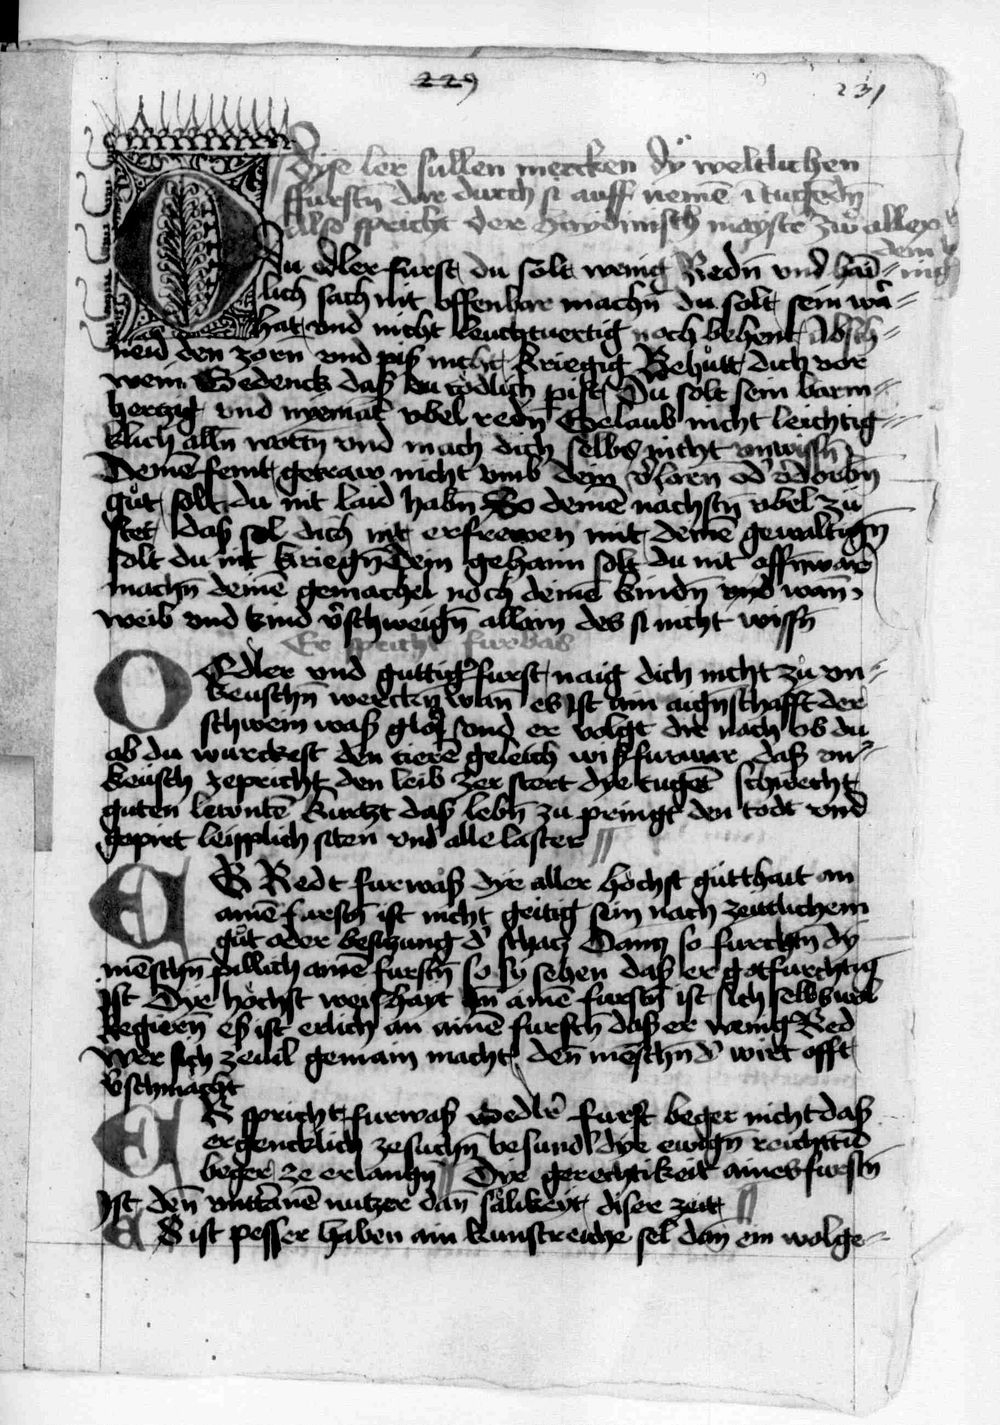 229
231
Dyse ler sullen mercken dy weltlichen
ffurstn̄ dar durch si auff nemē i tugedn̄
Also spricht der haydnisch mayster zẘ aller
dem
Du edler furst du solt wenig Redn̄ vnd haī=
lich sach nit offenbar machn̄ du solt sein wā=
hat vnd nicht leuchtuertig noch behent Absch=
neid den zorn vnd piß nicht kriegig Behůtt dich vor
wein Gedenck daß du tödlich pist Du solt sein barm=
hertzig vnd nyemāt vbel redn̄ Gelaub nicht leichtig=
klich alln̄ wortn̄ vnd mach dich selbs nicht vnwissn̄
Deinē feint getraw nicht vmb dein v̄loren od' v̄dorbn̄
gůt solt du nit laid habn̄ So deinē nachstn̄ vbel zů
stet daß sol dich nit erfrewen mit deinē gewaltign̄
solt du nit kriegn̄ dein gehaim solt du nit offnwar
machn̄ deinē gemachel noch deinē kindn̄ vnd wan̄
weib vnd kind v̄schweign̄ allain des si nicht wissn̄
Er spricht furbas
O Edler vnd guttiger furst naig dich nicht zů vn=
keuschn̄ wercken wan̄ es ist ain aignschafft der
schwein waß glori vnd er volgt dir nach ob du
ab du wurckest den tierē geleich wiß furwar daß vn=
keusch zepricht den leib zer stort dye tuget schwecht
guten lewntē kurtzt daß lebn̄ zu pringt den todt vnd
gepirt leipplich siten vnd alle laster //
ER Redt furwaß dye aller höchst gutthait an
ainē furstn̄ ist nicht geitig sein nach zeitlichem
gůt oder besitzung d' schatz Dann so furchtn̄ dy
mēschn̄ pillich ainē furstn̄ so sy sehen daß er gotfurchtig
ist Dye höchst weishayt an ainē furstn̄ ist sich selbs wol
regiern̄ eß ist erlich an ainē furstn̄ daß er wenig Red
wer sich zeuil gemain macht den̄ mēschn̄ d' wirt offt
v̄schmächt
ER spricht furwaß O edler furst beger nicht daß
ergencklich zesuchn̄ besund' dye ewign̄ reichtūb
beger ze erlangn̄ // Dye gerechtikeit aines furstn̄
ist den̄ vnttānē nutzer dan̄ sälikeyt diser zeit //
ES ist pesser haben ain kunstreiche sel dan̄ ein wolge=